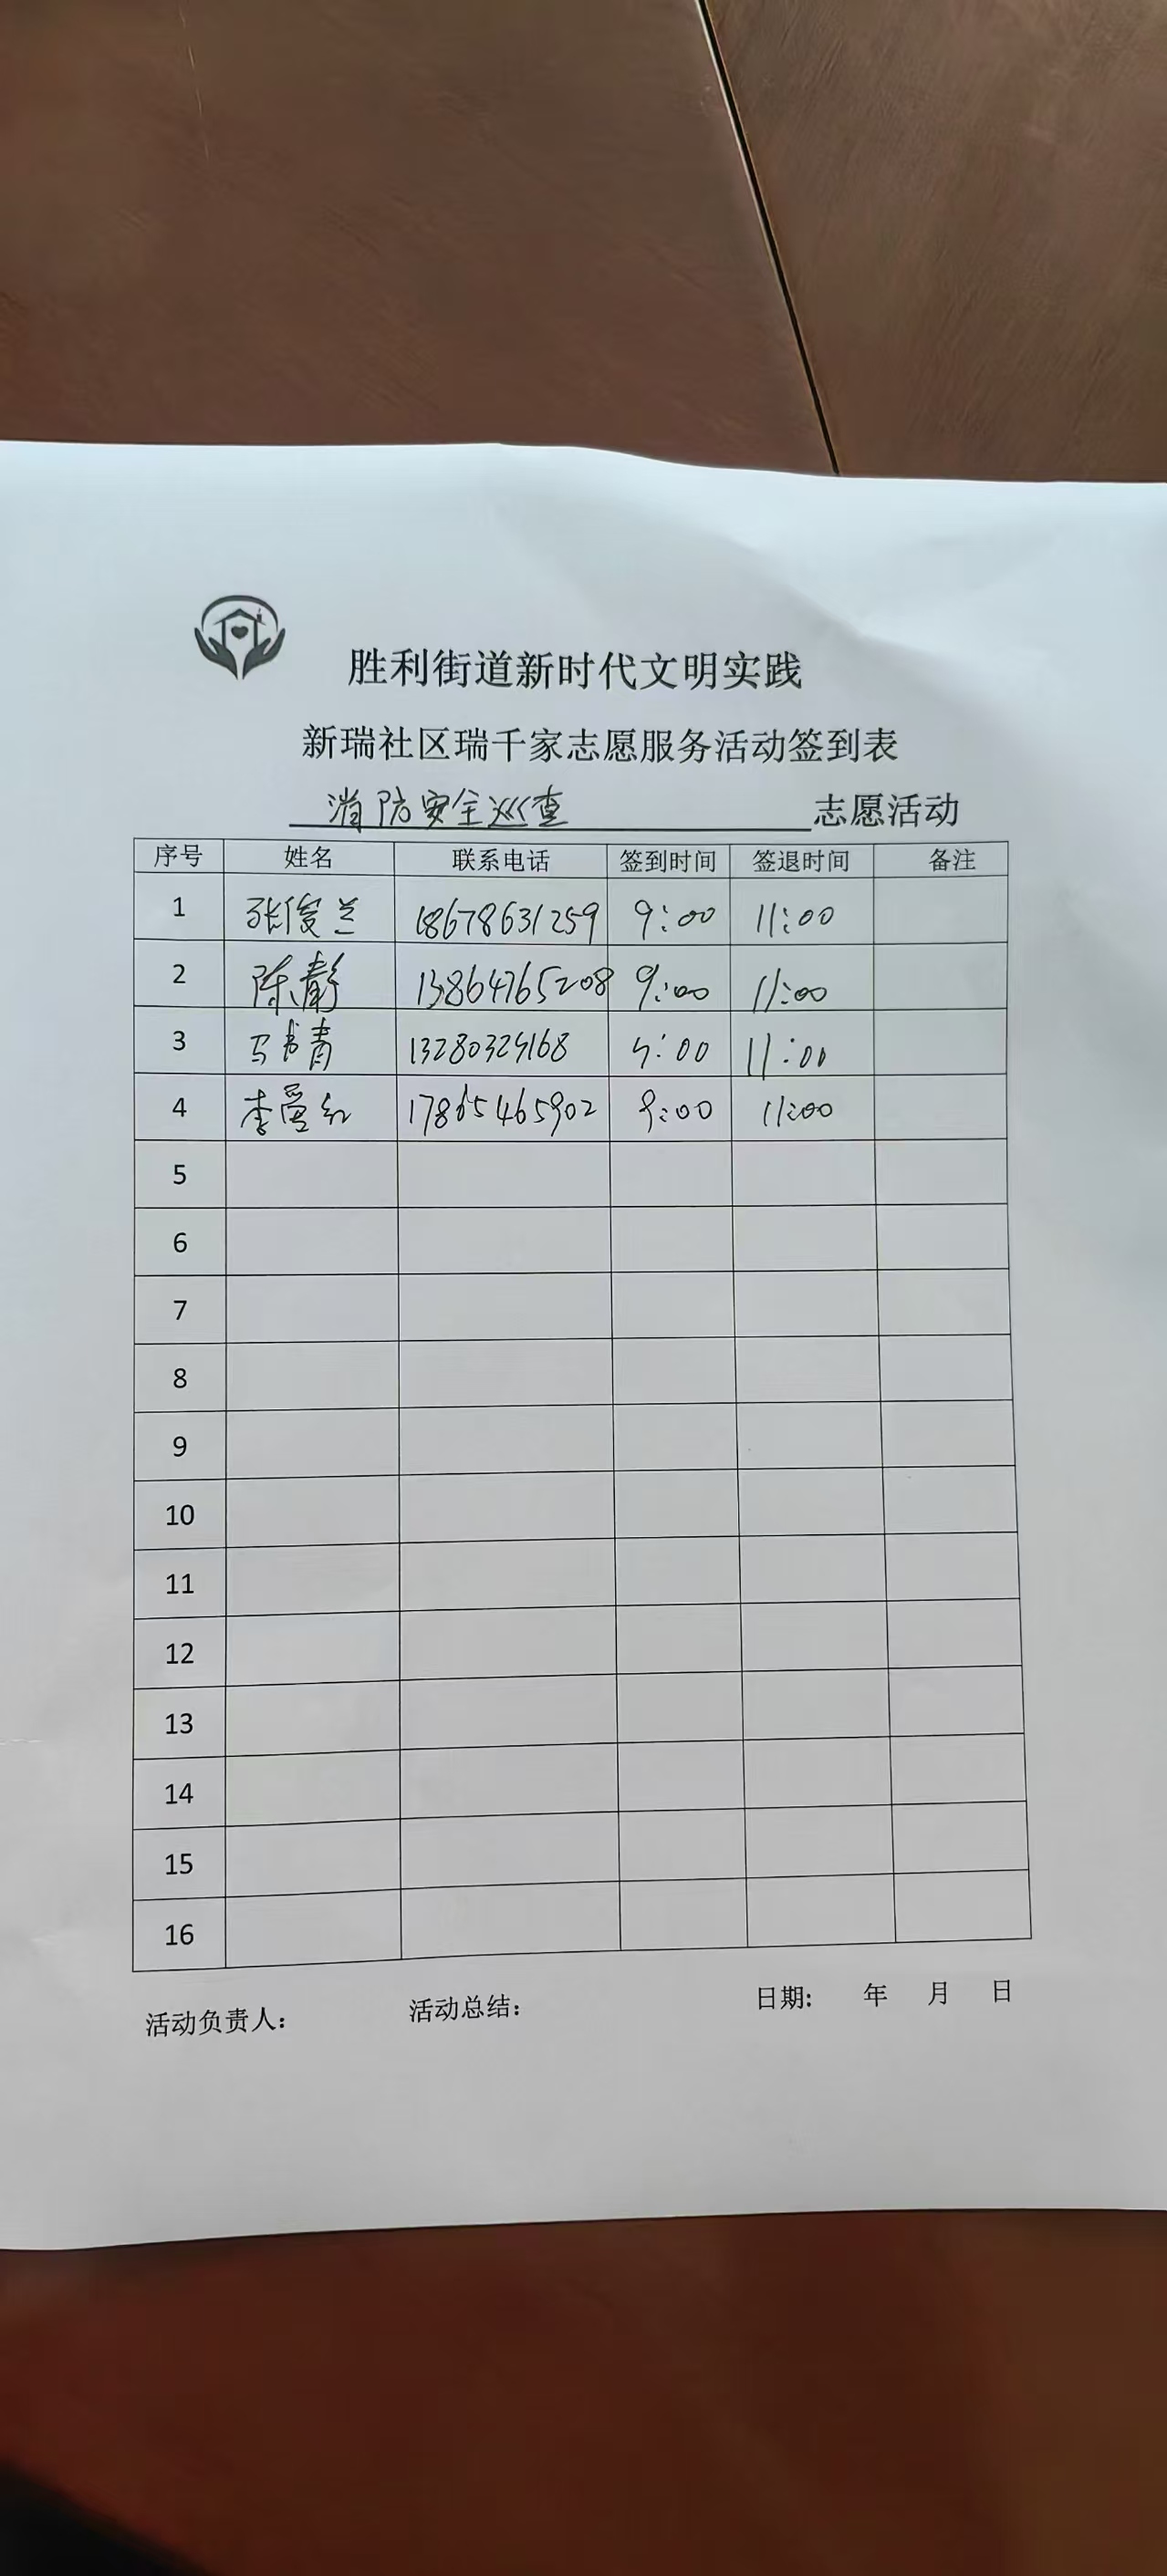 胜利街道新时代文明实践
新瑞社区瑞千家志愿服务活动签到表
消防安全巡查 志愿活动
序号 姓名 联系电话 签到时间 签退时间 备注
1 张俊兰 18678631259 9:00 11:00
2 陈静 13864765208 9:00 11:00
3 马书青 13280329168 9:00 11:00
4 李爱红 17865465902 9:00 11:00
5
6
7
8
9
10
11
12
13
14
15
16
活动负责人: 活动总结: 日期: 年 月 日